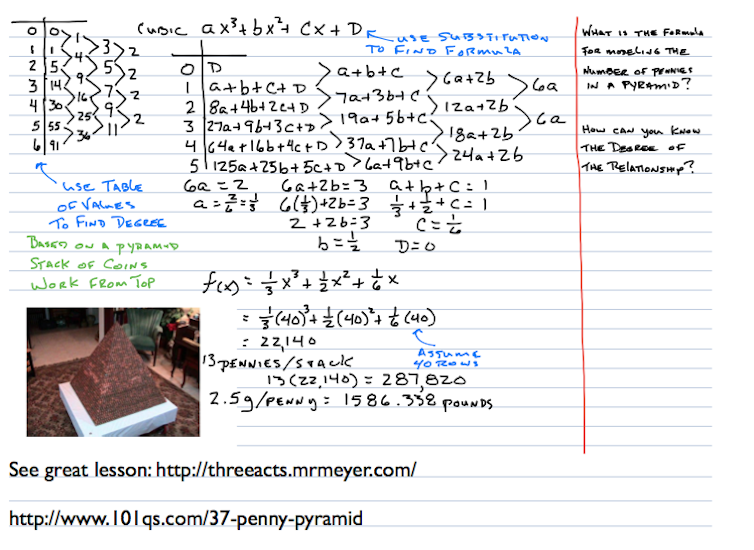 CUBIC ax³+bx²+cx+D
USE SUBSTITUTION
TO FIND FORMULA
0 0
1 1
2 5
3 14
4 30
5 55
6 91
1
4
9
16
25
36
3
5
7
9
11
2
2
2
2
0 D
1 a+b+c+D
2 8a+4b+2c+D
3 27a+9b+3c+D
4 64a+16b+4c+D
5 125a+25b+5c+D
a+b+c
7a+3b+c
19a+5b+c
37a+7b+c
61a+9b+c
6a+2b
12a+2b
18a+2b
24a+2b
6a
6a
USE TABLE
OF VALUES
TO FIND DEGREE
BASED ON A PYRAMID
STACK OF COINS
WORK FROM TOP
6a=2 6a+2b=3 a+b+c=1
a=2/6=1/3 6(1/3)+2b=3 1/3+1/2+c=1
2+2b=3 c=1/6
b=1/2 D=0
f(x)=1/3x³+1/2x²+1/6x
=1/3(40)³+1/2(40)²+1/6(40)
=22,140
ASSUME
40 ROWS
13 PENNIES/STACK
13(22,140)=287,820
2.5g/PENNY= 1586.338 POUNDS
WHAT IS THE FORMULA
FOR MODELING THE
NUMBER OF PENNIES
IN A PYRAMID?
HOW CAN YOU KNOW
THE DEGREE OF
THE RELATIONSHIP?
See great lesson: http://threeacts.mrmeyer.com/
http://www.101qs.com/37-penny-pyramid